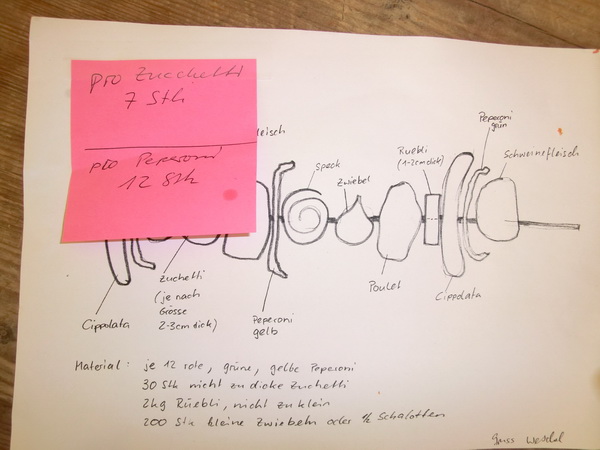 pro Zucchetti
7 Stk
pro Peperoni
12 Stk
leisch
Speck
Zwiebel
Rüebli
(1-2cm dick)
Peperoni
grün
Schweinefleisch
Cippolata
Zuchetti
(je nach
Grösse
2-3cm dick)
Peperoni
gelb
Poulet
Cippolata
Material: je 12 rote, grüne, gelbe Peperoni
30 Stk nicht zu dicke Zuchetti
2kg Rüebli, nicht zu klein
200 Stk kleine Zwiebeln oder 1/2 Schalotten